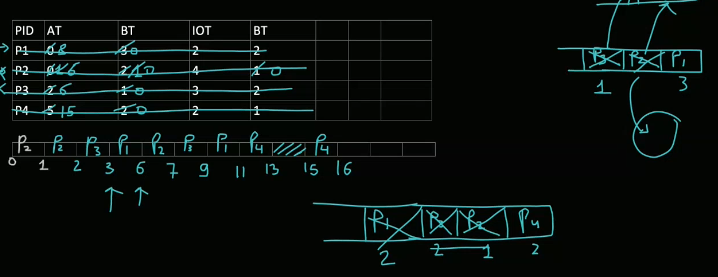 PID AT BT IOT BT
P1 0 8 3 0 2 2
P2 0 1 6 2 1 0 4 1 0
P3 2 6 1 0 3 2
P4 5 15 2 0 2 1
P2 P2 P3 P1 P2 P3 P1 P4 P4
0 1 2 3 6 7 9 11 13 15 16
P3 P2 P1
1 3
P1 P3 P2 P4
2 2 1 2